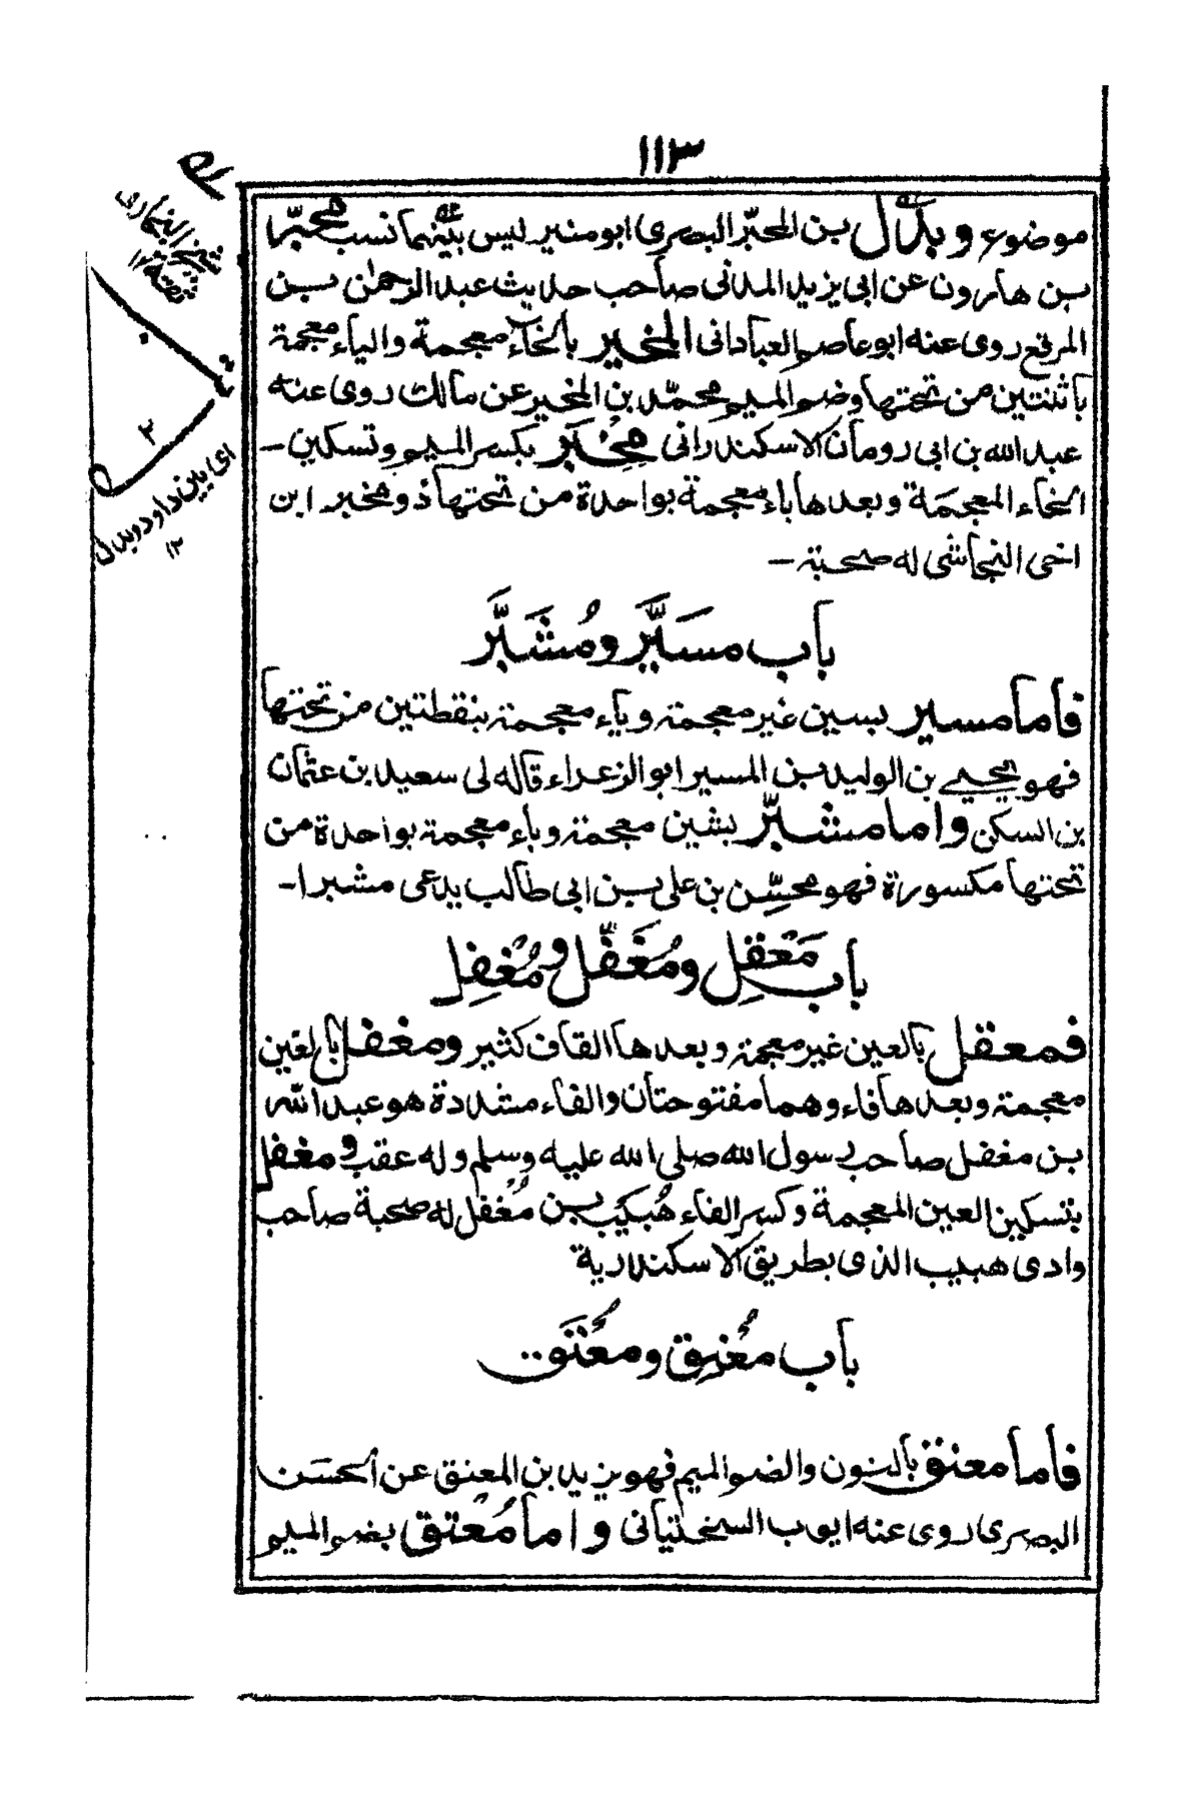 ١١٣
موضوع وبدّل بن المحبّر البصرى ابو منير ليس بينهما نسب محبّر
بن هارون عن ابى يزيد المدنى صاحب حديث عبد الرحمٰن بن
المرقع روى عنه ابو عاصم العبادانى المخير بالخاء معجمة والياء معجمة
باثنتين من تحتها وضم الميم محمّد بن المخير عن مالك روى عنه
عبد الله بن ابى رومان الاسكندرانى مِخْبَر بكسر الميم وتسكين -
الخاء المعجمة وبعدها باء معجمة بواحدة من تحتها ذو مخبر ابن
اخى النجاشى له صحبة -
باب مسَيَّر ومُشَبَّر
فاما مسير بسين غير معجمة وياء معجمة بنقطتين من تحتها
فهو يحيى بن الوليد بن المسير ابو الزعراء قاله لى سعيد بن عثمان
بن السكن واما مشبّر بشين معجمة وباء معجمة بواحدة من
تحتها مكسورة فهو محسّن بن على بن ابى طالب يدعى مشبرا -
باب مَعْقِل ومُغَفَّل ومُغْفِل
فمعقل بالعين غير معجمة وبعدها القاف كثير ومغفل بالغين
معجمة وبعدها فاء وهما مفتوحتان والفاء مشددة هو عبد الله
بن مغفل صاحب رسول الله صلى الله عليه وسلم وله عقب ومغفل
بتسكين الغين المعجمة وكسر الفاء هُبيب بن مُغفل له صحبة صاحب
وادى هبيب الذى بطريق الاسكندرية
باب مُعْنِق ومُعْتَق
فاما معنق بالنون والضم الميم فهو يزيد بن المعنق عن الحسن
البصرى روى عنه ايوب السختيانى واما مُعْتق بضم الميم
شيخ البخارى
ثقة ١٢
٢
اى بين داود وبدل
١٢